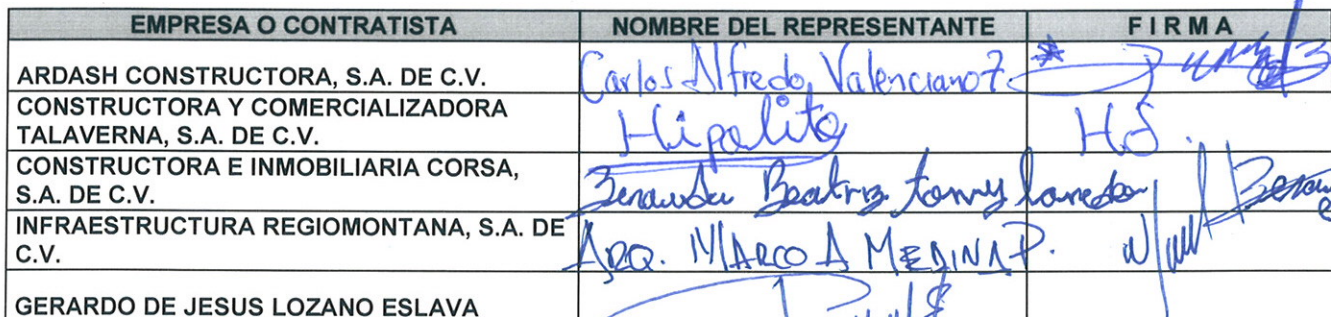 EMPRESA O CONTRATISTA NOMBRE DEL REPRESENTANTE FIRMA
ARDASH CONSTRUCTORA, S.A. DE C.V. Carlos Alfredo Valenciano
CONSTRUCTORA Y COMERCIALIZADORA
TALAVERNA, S.A. DE C.V. Hipolito H.S.
CONSTRUCTORA E INMOBILIARIA CORSA,
S.A. DE C.V. Beatriz
INFRAESTRUCTURA REGIOMONTANA, S.A. DE
C.V. ARQ. MARCO A MEDINA P.
GERARDO DE JESUS LOZANO ESLAVA